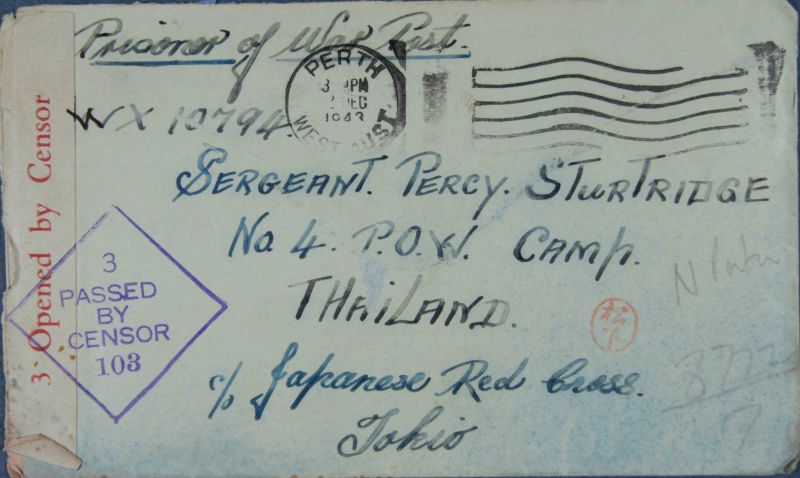 Prisoner of War Post.
PERTH
3 PM
2 DEC
1943
WEST. AUST.
WX 10794.
SERGEANT. PERCY. STURTRIDGE
No. 4. P.O.W. CAMP.
THAILAND.
c/o Japanese Red Cross.
Tokio
3 Opened by Censor
3
PASSED
BY
CENSOR
103